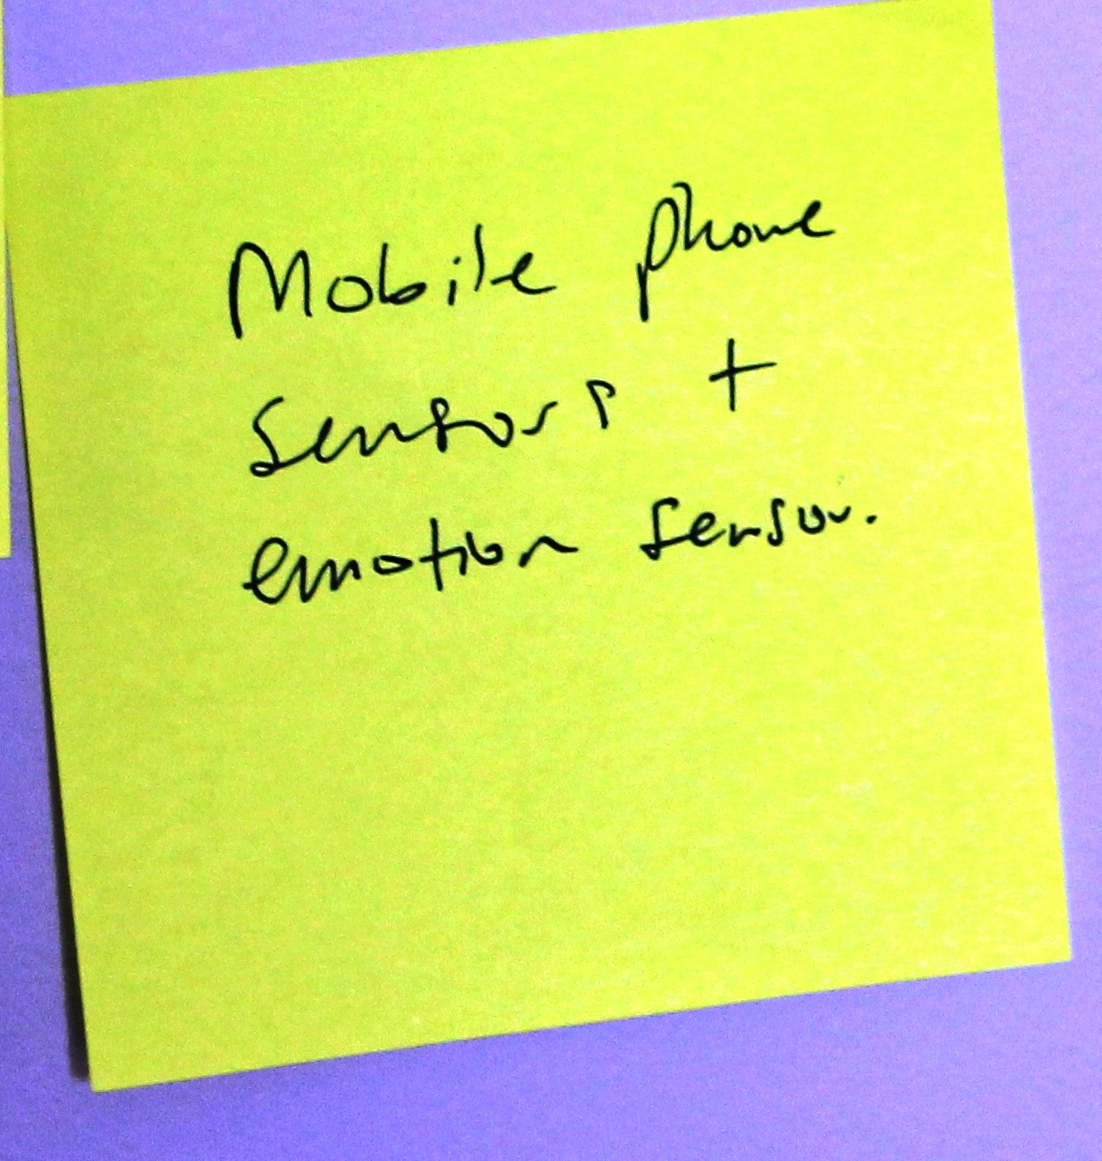 Mobile phone
sensors +
emotion sensor.